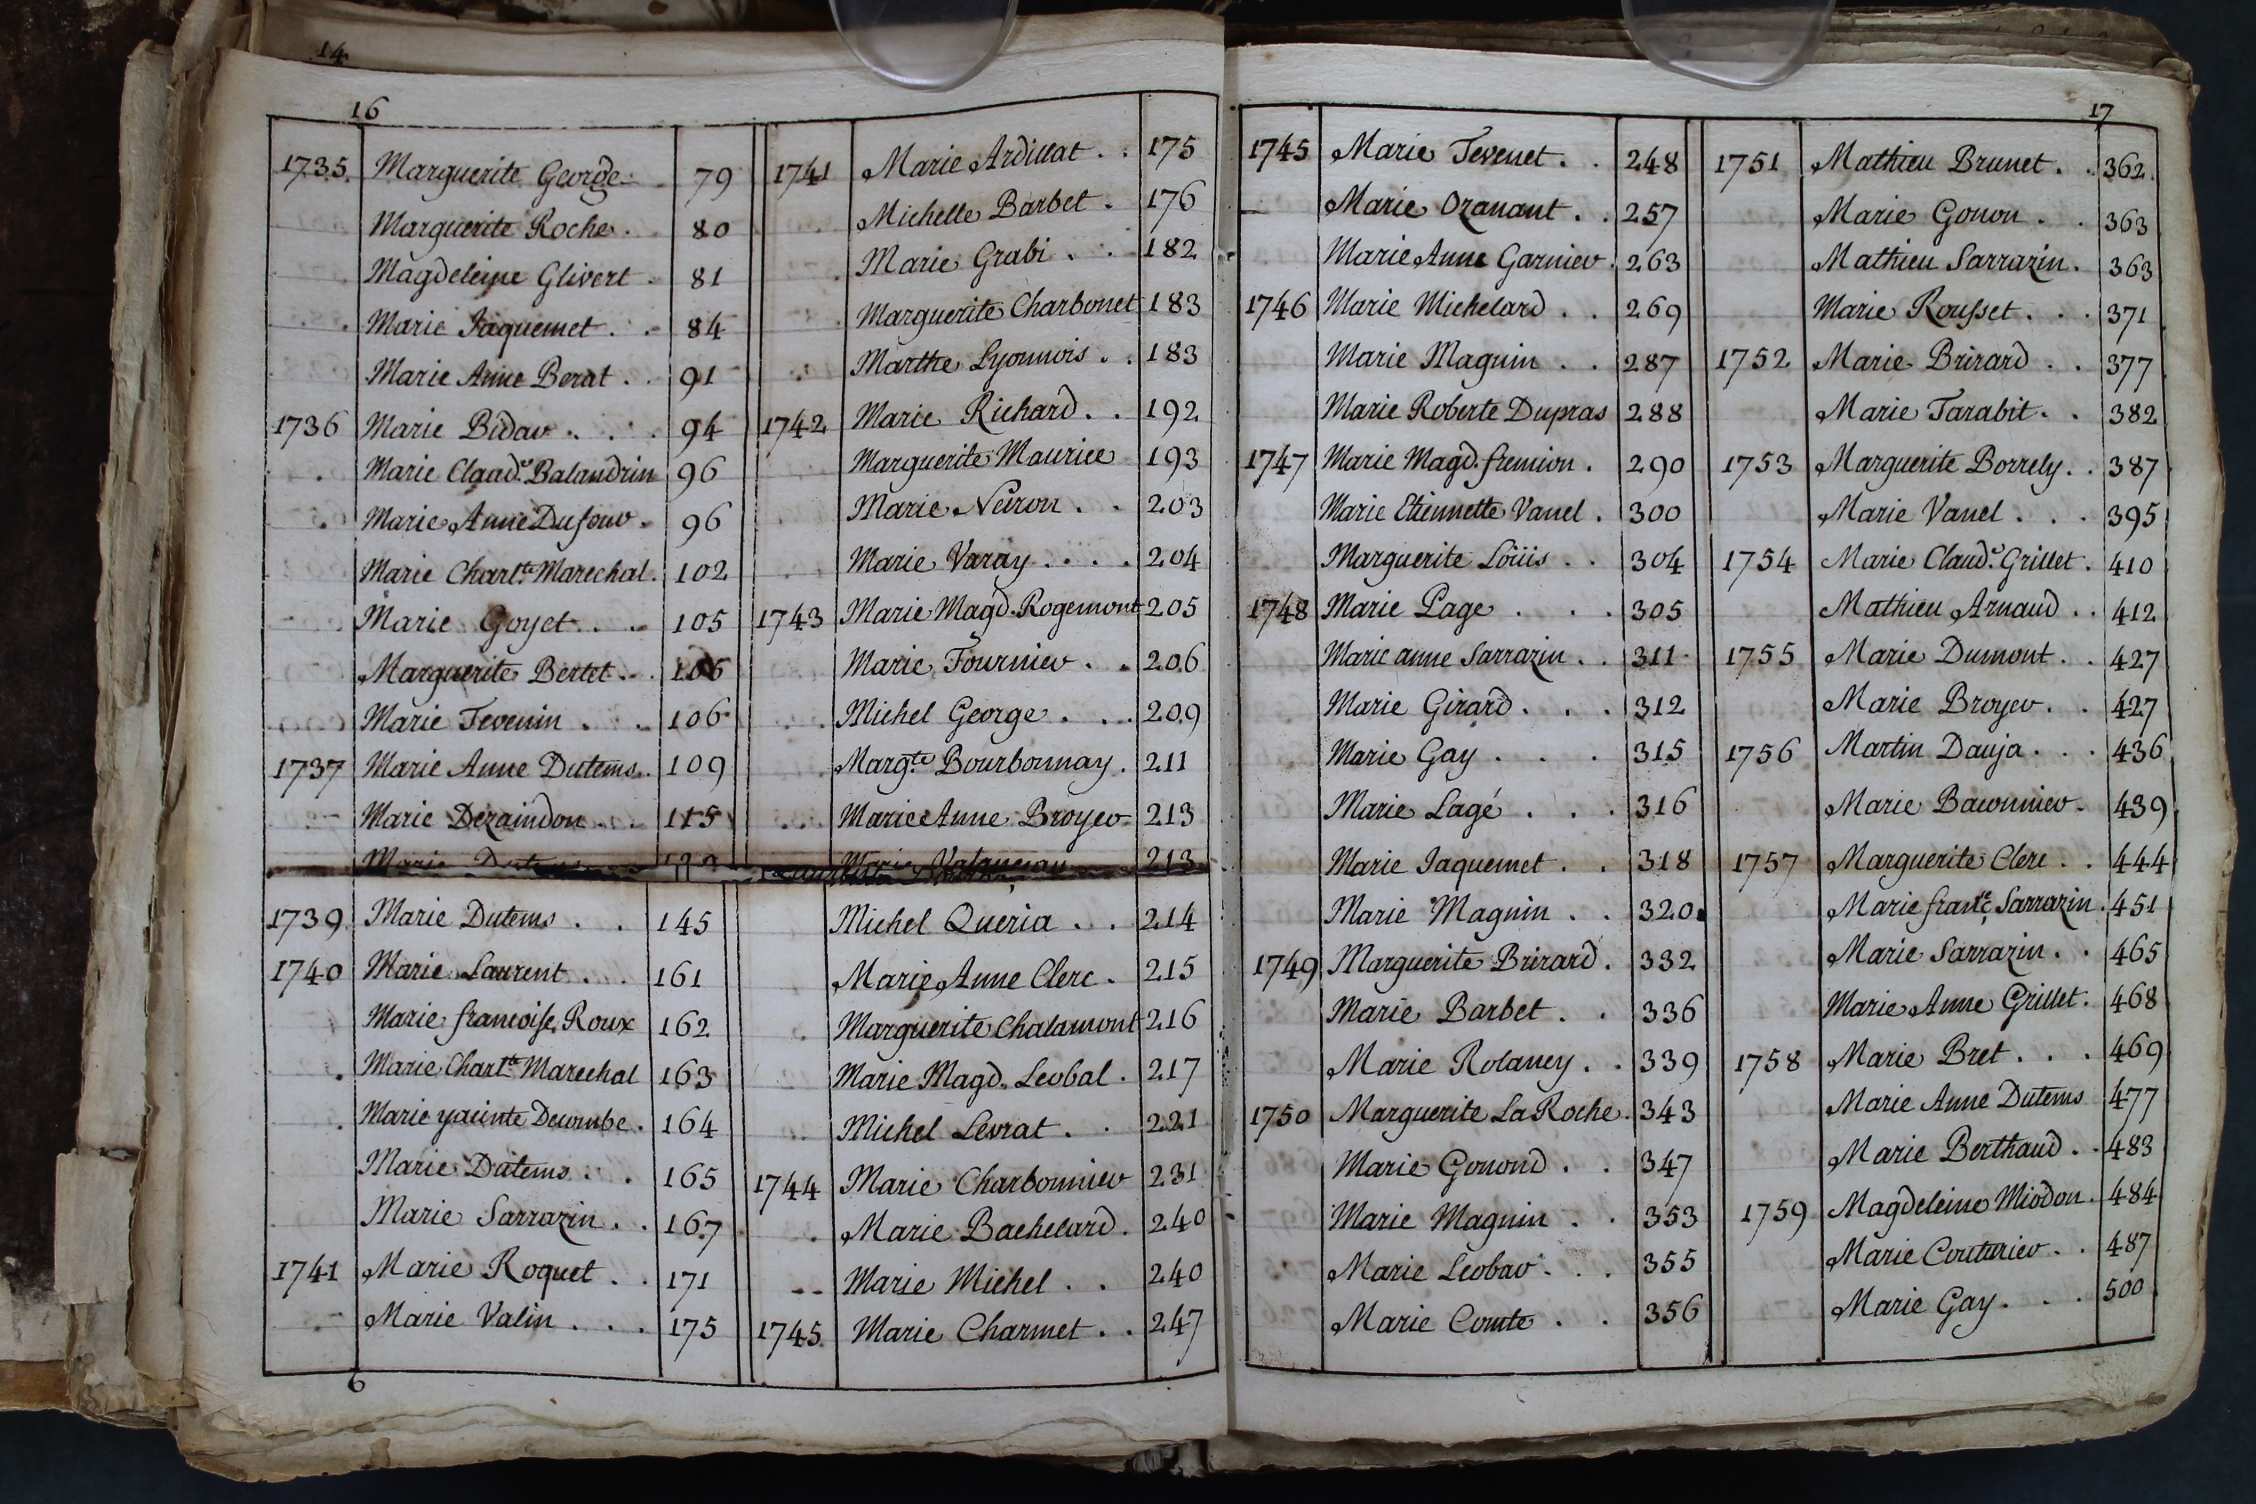 14
16
1735 Marguerite George 79
Marguerite Roche . 80
Magdeleine Glivert . 81
Marie Jaquemet . . 84
Marie Anne Berat . . 91
1736 Marie Bidav . . . 94
Marie Claude. Balandrin 96
Marie Anne Dufouv . 96
Marie Charlte Marechal . 102
Marie Goyet . . 105
Marguerite Bertet . . 106
Marie Tevenin . . . 106
1737 Marie Anne Dutems . 109
Marie Dezaindon . . 115
Marie
1739 Marie Dutems . . 145
1740 Marie Laurent . . 161
Marie francoise Roux 162
Marie Charlte Marechal 163
Marie yacinte Decombe . 164
Marie Dutems . . 165
Marie Sarrazin . . 167
1741 Marie Roquet . . 171
Marie Valin . . . 175
6
1741 Marie Ardillat . . 175
Michelle Barbet . 176
Marie Grabi . . 182
Marguerite Charbonet 183
Marthe Lyonnois . . 183
1742 Marie Richard . . 192
Marguerite Maurice 193
Marie Neiron . . 203
Marie Varay . . . . 204
1743 Marie Magd. Rogemont 205
Marie Fourniev . . 206
Michel George . . . 209
Margte Bourbonnay . 211
Marie Anne Broyev 213
Marie 213
Michel Queria . . 214
Marie Anne Clerc . 215
Marguerite Chalamont 216
Marie Magd. Leobal . 217
Michel Levrat . . 221
1744 Marie Charbonniev 231
Marie Bachelard . 240
Marie Michel . . 240
1745 Marie Charmet . . 247
17
1745 Marie Tevenet . . 248
Marie Ozanant . . 257
Marie Anne Garniev . 263
1746 Marie Michelard . . 269
Marie Magnin . . 287
Marie Roberte Dupras 288
1747 Marie Magd. fremion . 290
Marie Etiennette Vanel . 300
Marguerite Loüis . . 304
1748 Marie Page . . . 305
Marie anne Sarrazin . . 311
Marie Girard . . . 312
Marie Gay . . . 315
Marie Lagé . . . 316
Marie Jaquemet . . 318
Marie Magnin . . 320
1749 Marguerite Brirard . 332
Marie Barbet . . 336
Marie Rolancy . . 339
1750 Marguerite La Roche . 343
Marie Gonond . . 347
Marie Magnin . . 353
Marie Leobav . . . 355
Marie Comte . . 356
1751 Mathieu Brunet . . 362
Marie Gonon . . 363
Mathieu Sarrazin . 363
Marie Rousset . . . 371
1752 Marie Brirard . . 377
Marie Tarabit . . 382
1753 Marguerite Borrely . . 387
Marie Vanel . . . 395
1754 Marie Claude. Grillet . 410
Mathieu Arnaud . . 412
1755 Marie Dumont . . 427
Marie Broyev . . 427
1756 Martin Dauja . . . 436
Marie Baconniev . 439
1757 Marguerite Clerc . . 444
Marie france Sarrazin . 451
Marie Sarrazin . . 465
Marie Anne Grillet . 468
1758 Marie Bret . . . 469
Marie Anne Dutems 477
Marie Berthaud . . 483
1759 Magdeleine Miodon . 484
Marie Couturiev . . 487
Marie Gay . . . 500